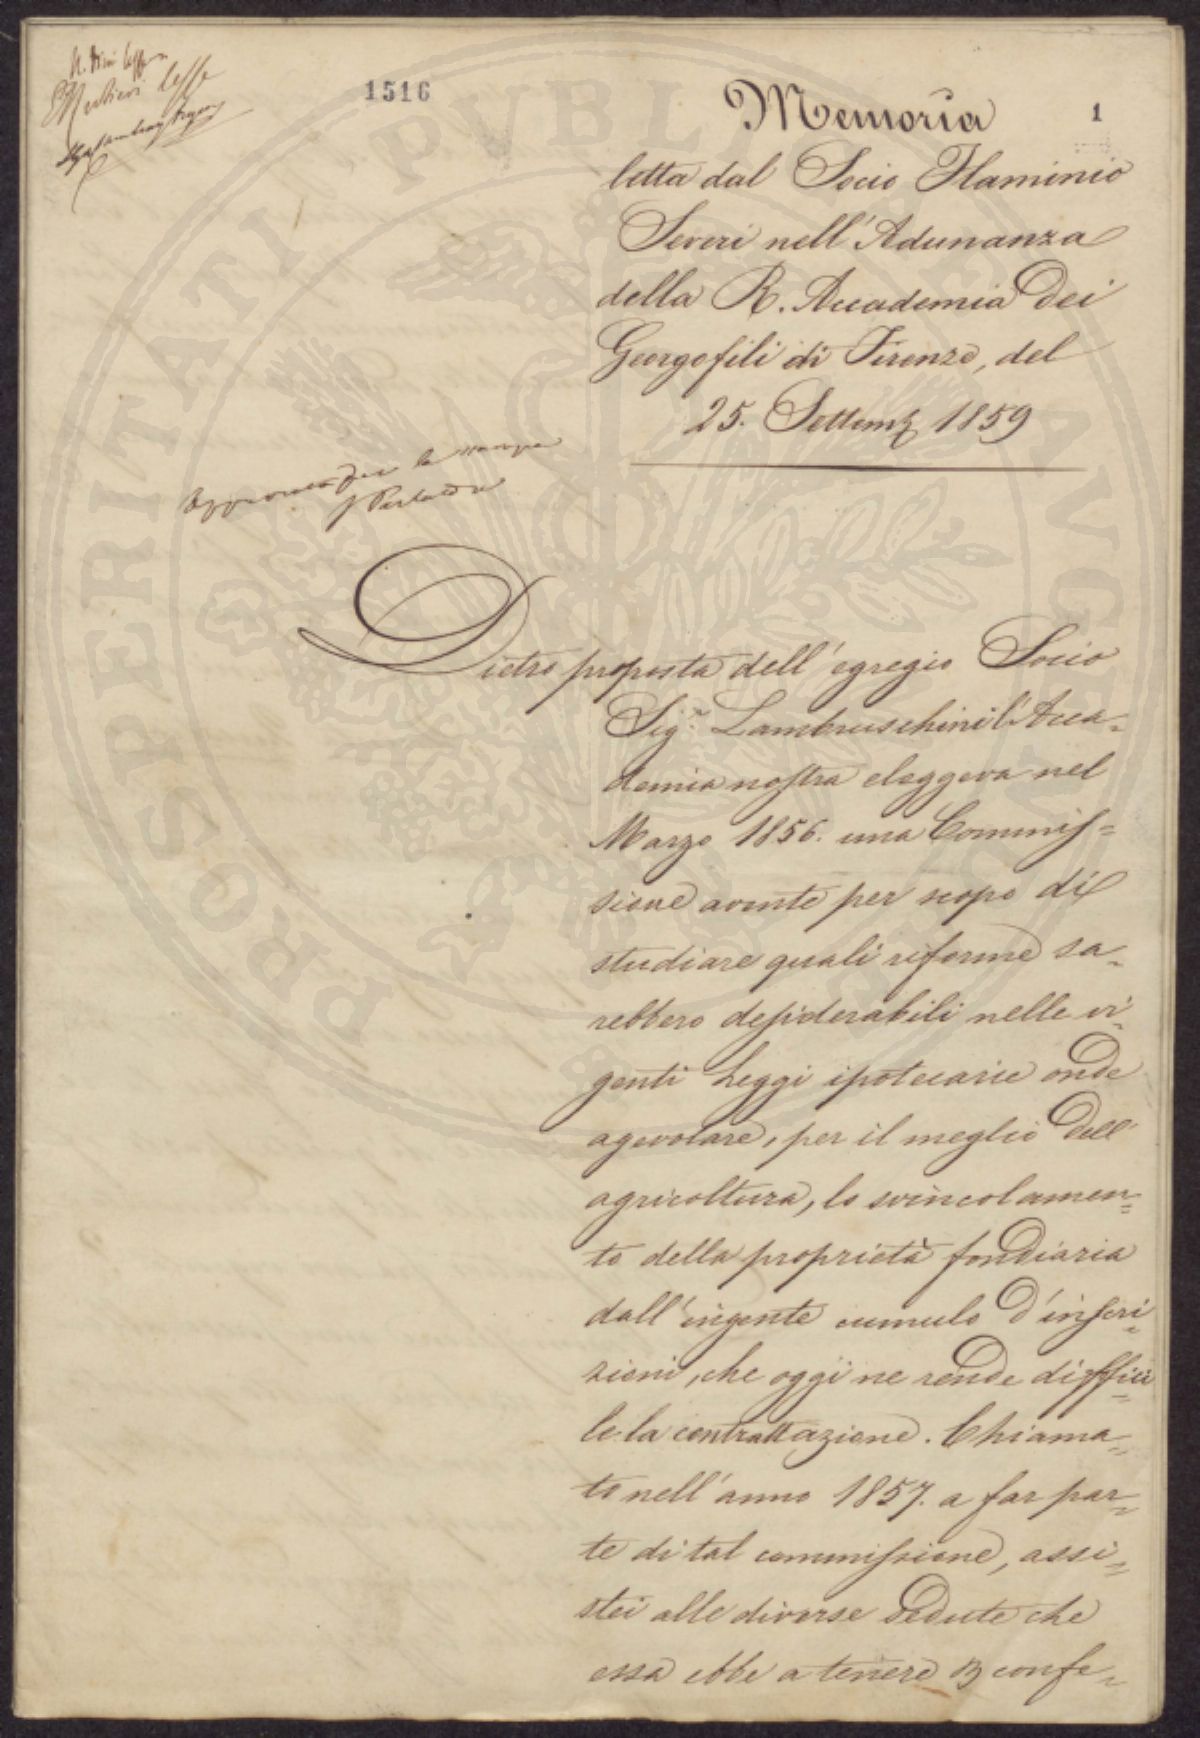 N. Dini lesse
lesse
1516
Memoria
1
letta dal Socio Flaminio
Severi nell'Adunanza
della R. Accademia dei
Georgofili di Firenze, del
25. Settemb 1859
Approvata per la stampa
Dietro proposta dell'egregio Socio
Sigr. Lambruschini l'Acca=
demia nostra eleggeva nel
Marzo 1856. una Commis=
sione avente per scopo di
studiare quali riforme sa=
rebbero desiderabili nelle vi=
genti Leggi ipotecarie onde
agevolare, per il meglio dell'
agricoltura, lo svincolamen=
to della proprietà fondiaria
dall'ingente cumulo d'inscri=
zioni, che oggi ne rende diffici=
le la contrattazione. Chiama=
to nell'anno 1857. a far par=
te di tal commissione, assi=
stei alle diverse sedute che
essa ebbe a tenere confe=
PROSPERITATI PVBLICAE AVGENDAE